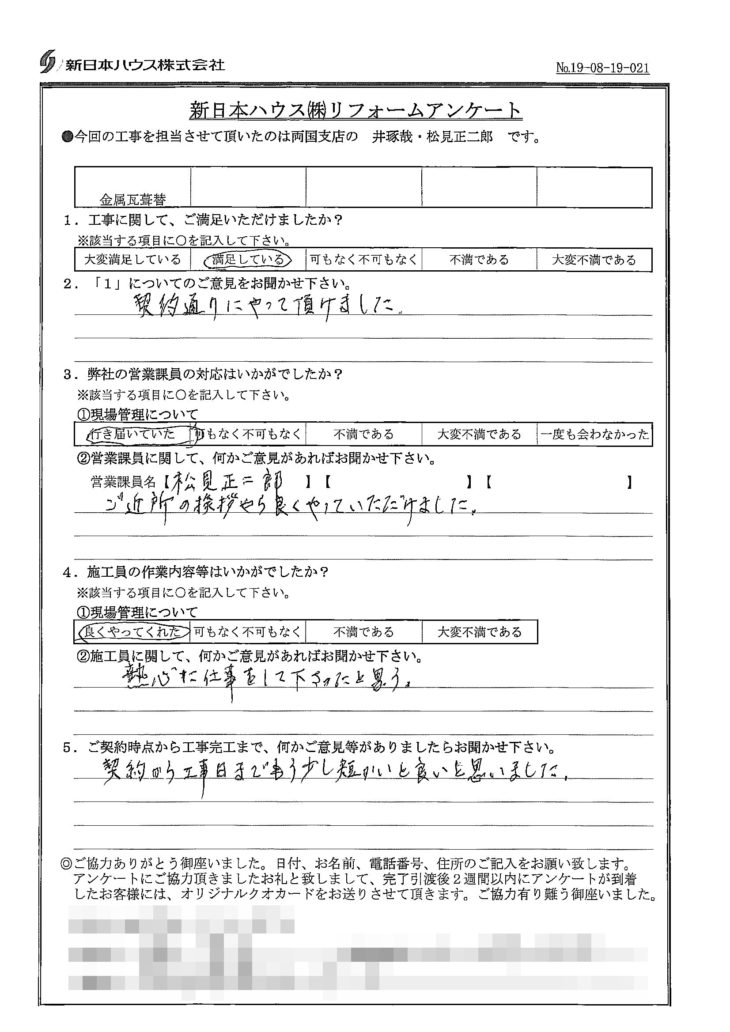 新日本ハウス株式会社
№19-08-19-021
新日本ハウス㈱リフォームアンケート
●今回の工事を担当させて頂いたのは両国支店の 井琢哉・松見正二郎 です。
金属瓦葺替
1．工事に関して、ご満足いただけましたか？
※該当する項目に○を記入して下さい。
大変満足している 満足している 可もなく不可もなく 不満である 大変不満である
2．「1」についてのご意見をお聞かせ下さい。
契約通りにやって頂けました。
3．弊社の営業課員の対応はいかがでしたか？
※該当する項目に○を記入して下さい。
①現場管理について
行き届いていた 可もなく不可もなく 不満である 大変不満である 一度も会わなかった
②営業課員に関して、何かご意見があればお聞かせ下さい。
営業課員名【松見正二郎 】【 】【 】
ご近所の挨拶やら良くやっていただけました。
4．施工員の作業内容等はいかがでしたか？
※該当する項目に○を記入して下さい。
①現場管理について
良くやってくれた 可もなく不可もなく 不満である 大変不満である
②施工員に関して、何かご意見があればお聞かせ下さい。
熱心に仕事をして下さったと思う。
5．ご契約時点から工事完工まで、何かご意見等がありましたらお聞かせ下さい。
契約から工事日までもう少し短かいと良いと思いました。
◎ご協力ありがとう御座いました。日付、お名前、電話番号、住所のご記入をお願い致します。
アンケートにご協力頂きましたお礼と致しまして、完了引渡後２週間以内にアンケートが到着
したお客様には、オリジナルクオカードをお送りさせて頂きます。ご協力有り難う御座いました。